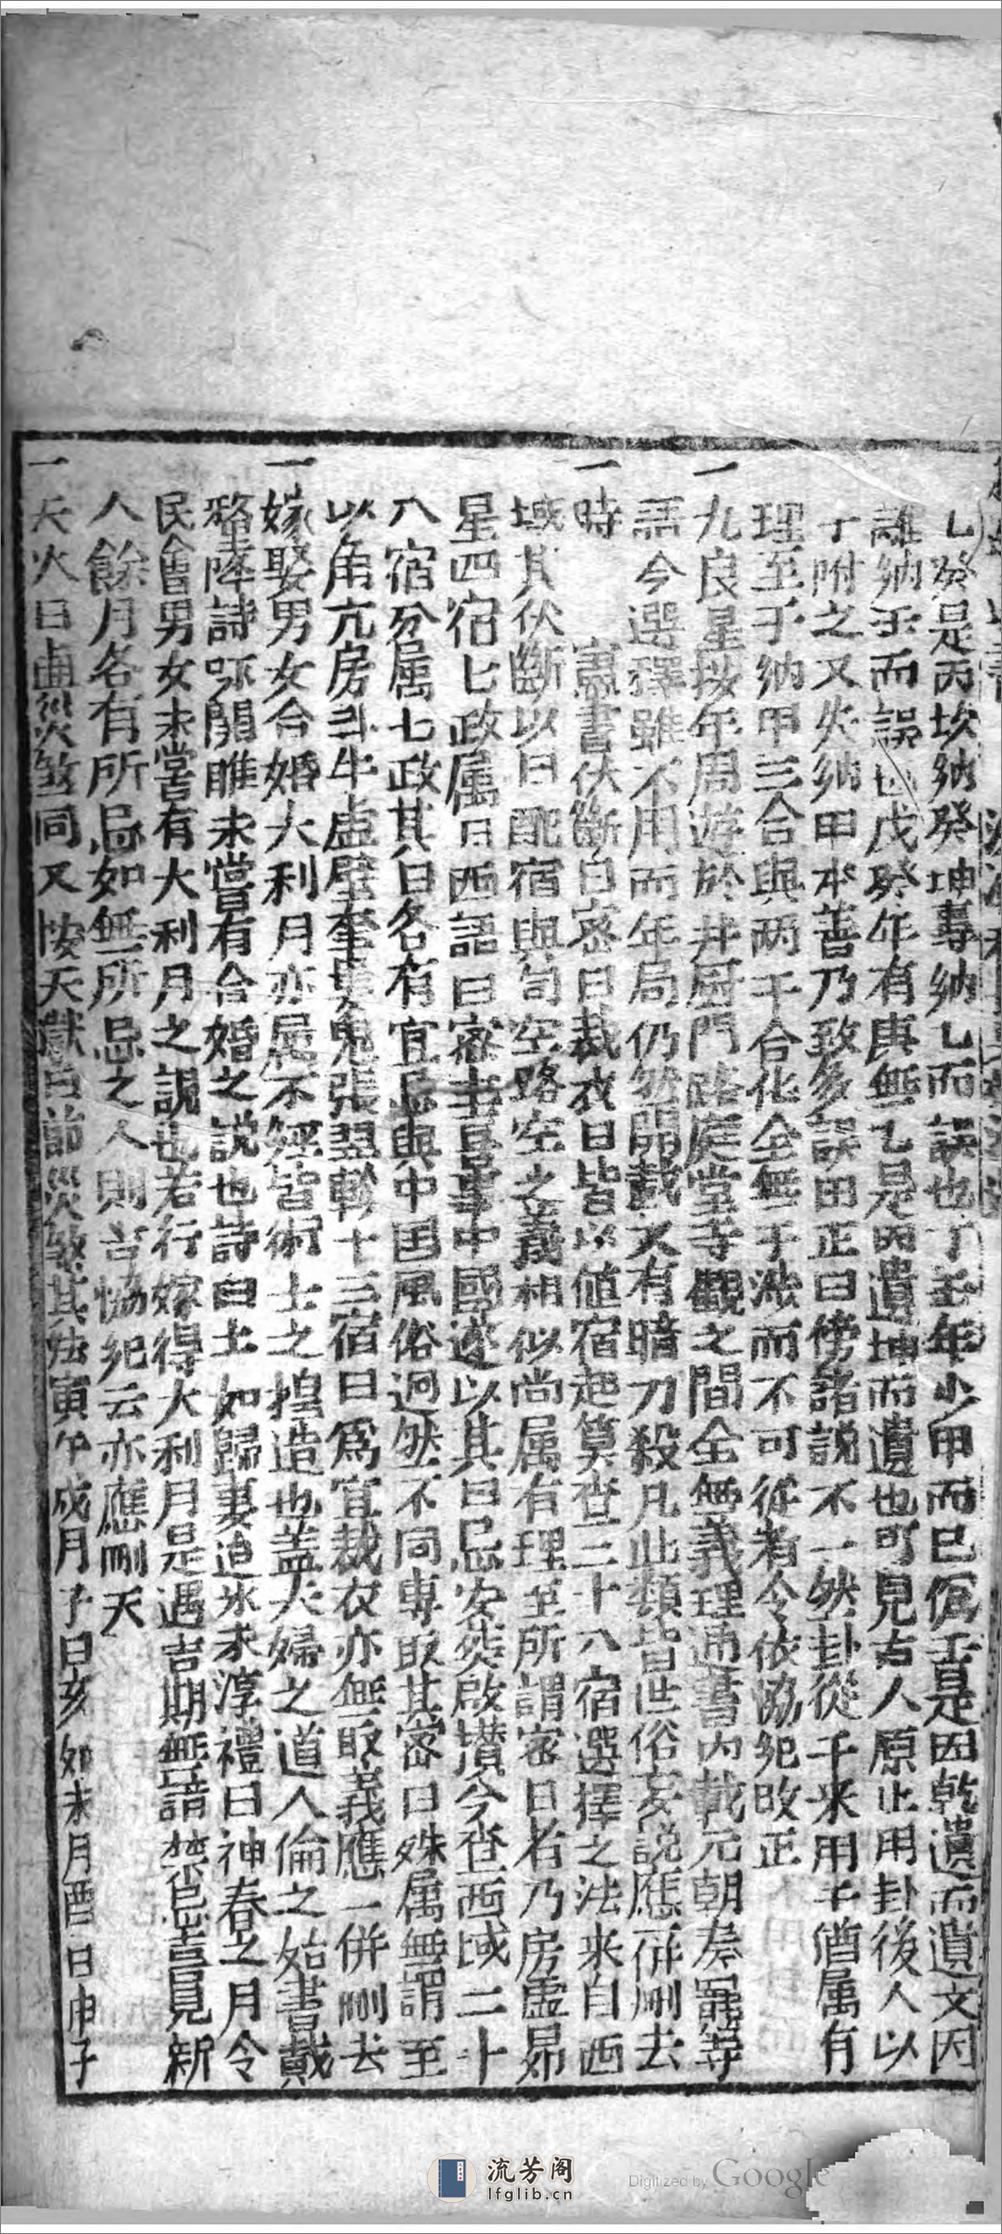 乙癸是丙坎納癸坤專納乙而誤也丁壬年少甲而已但壬是因乾遺而遺文因
離納壬而誤也戊癸年有庚無乙是因遺坤而遺也可見古人原止用卦後人以
丁附之又火納甲本善乃致多誤田正曰傍諸說不一然卦從千來用千酋属有
理至于納甲三合與两干合化全無于涉而不可從者今依恊纪改正
一九良星按年周遊於井厨門路庭堂寺觀之間全無義理通書内載元朝奏罷等
語今選擇雖不用而年局仍然開載又有暗刀殺凡此類皆世俗妄說應一併刪去
一時憲書伏斷日宻日裁衣日皆以值宿起算查二十八宿選擇之法来自西
域其伏斷以日配宿與旬空路空之義相似尚属有理至所謂宻日者乃房虚昴
星四宿七政属日西語曰宻書中國遂以其日忌安葬啟攢今查西域二十
八宿分属七政其日各有宜忌與中国風俗迥然不同專取其宻日殊属無謂至
以角亢房斗牛虚壁奎婁鬼張翌軫十三宿曰爲宜裁衣亦無取義應一併刪去
一嫁娶男女合婚大利月亦屬不經皆術士之揑造也蓋夫婦之道人倫之始書載
釐降詩咏關雎未嘗有合婚之說也詩曰士如歸妻迨氷未淳禮曰神春之月令
民會男女未嘗有大利月之說也若行嫁得大利月是遇吉期無諸禁忌壹見新
人餘月各有所忌如無所忌之人則吉恊纪云亦應刪天
一天火日鹵災煞同又按天獄日節災煞其法寅午戍月子日亥如未月酉日申子
流芳阁
lfglib.cn
Digitized by Google